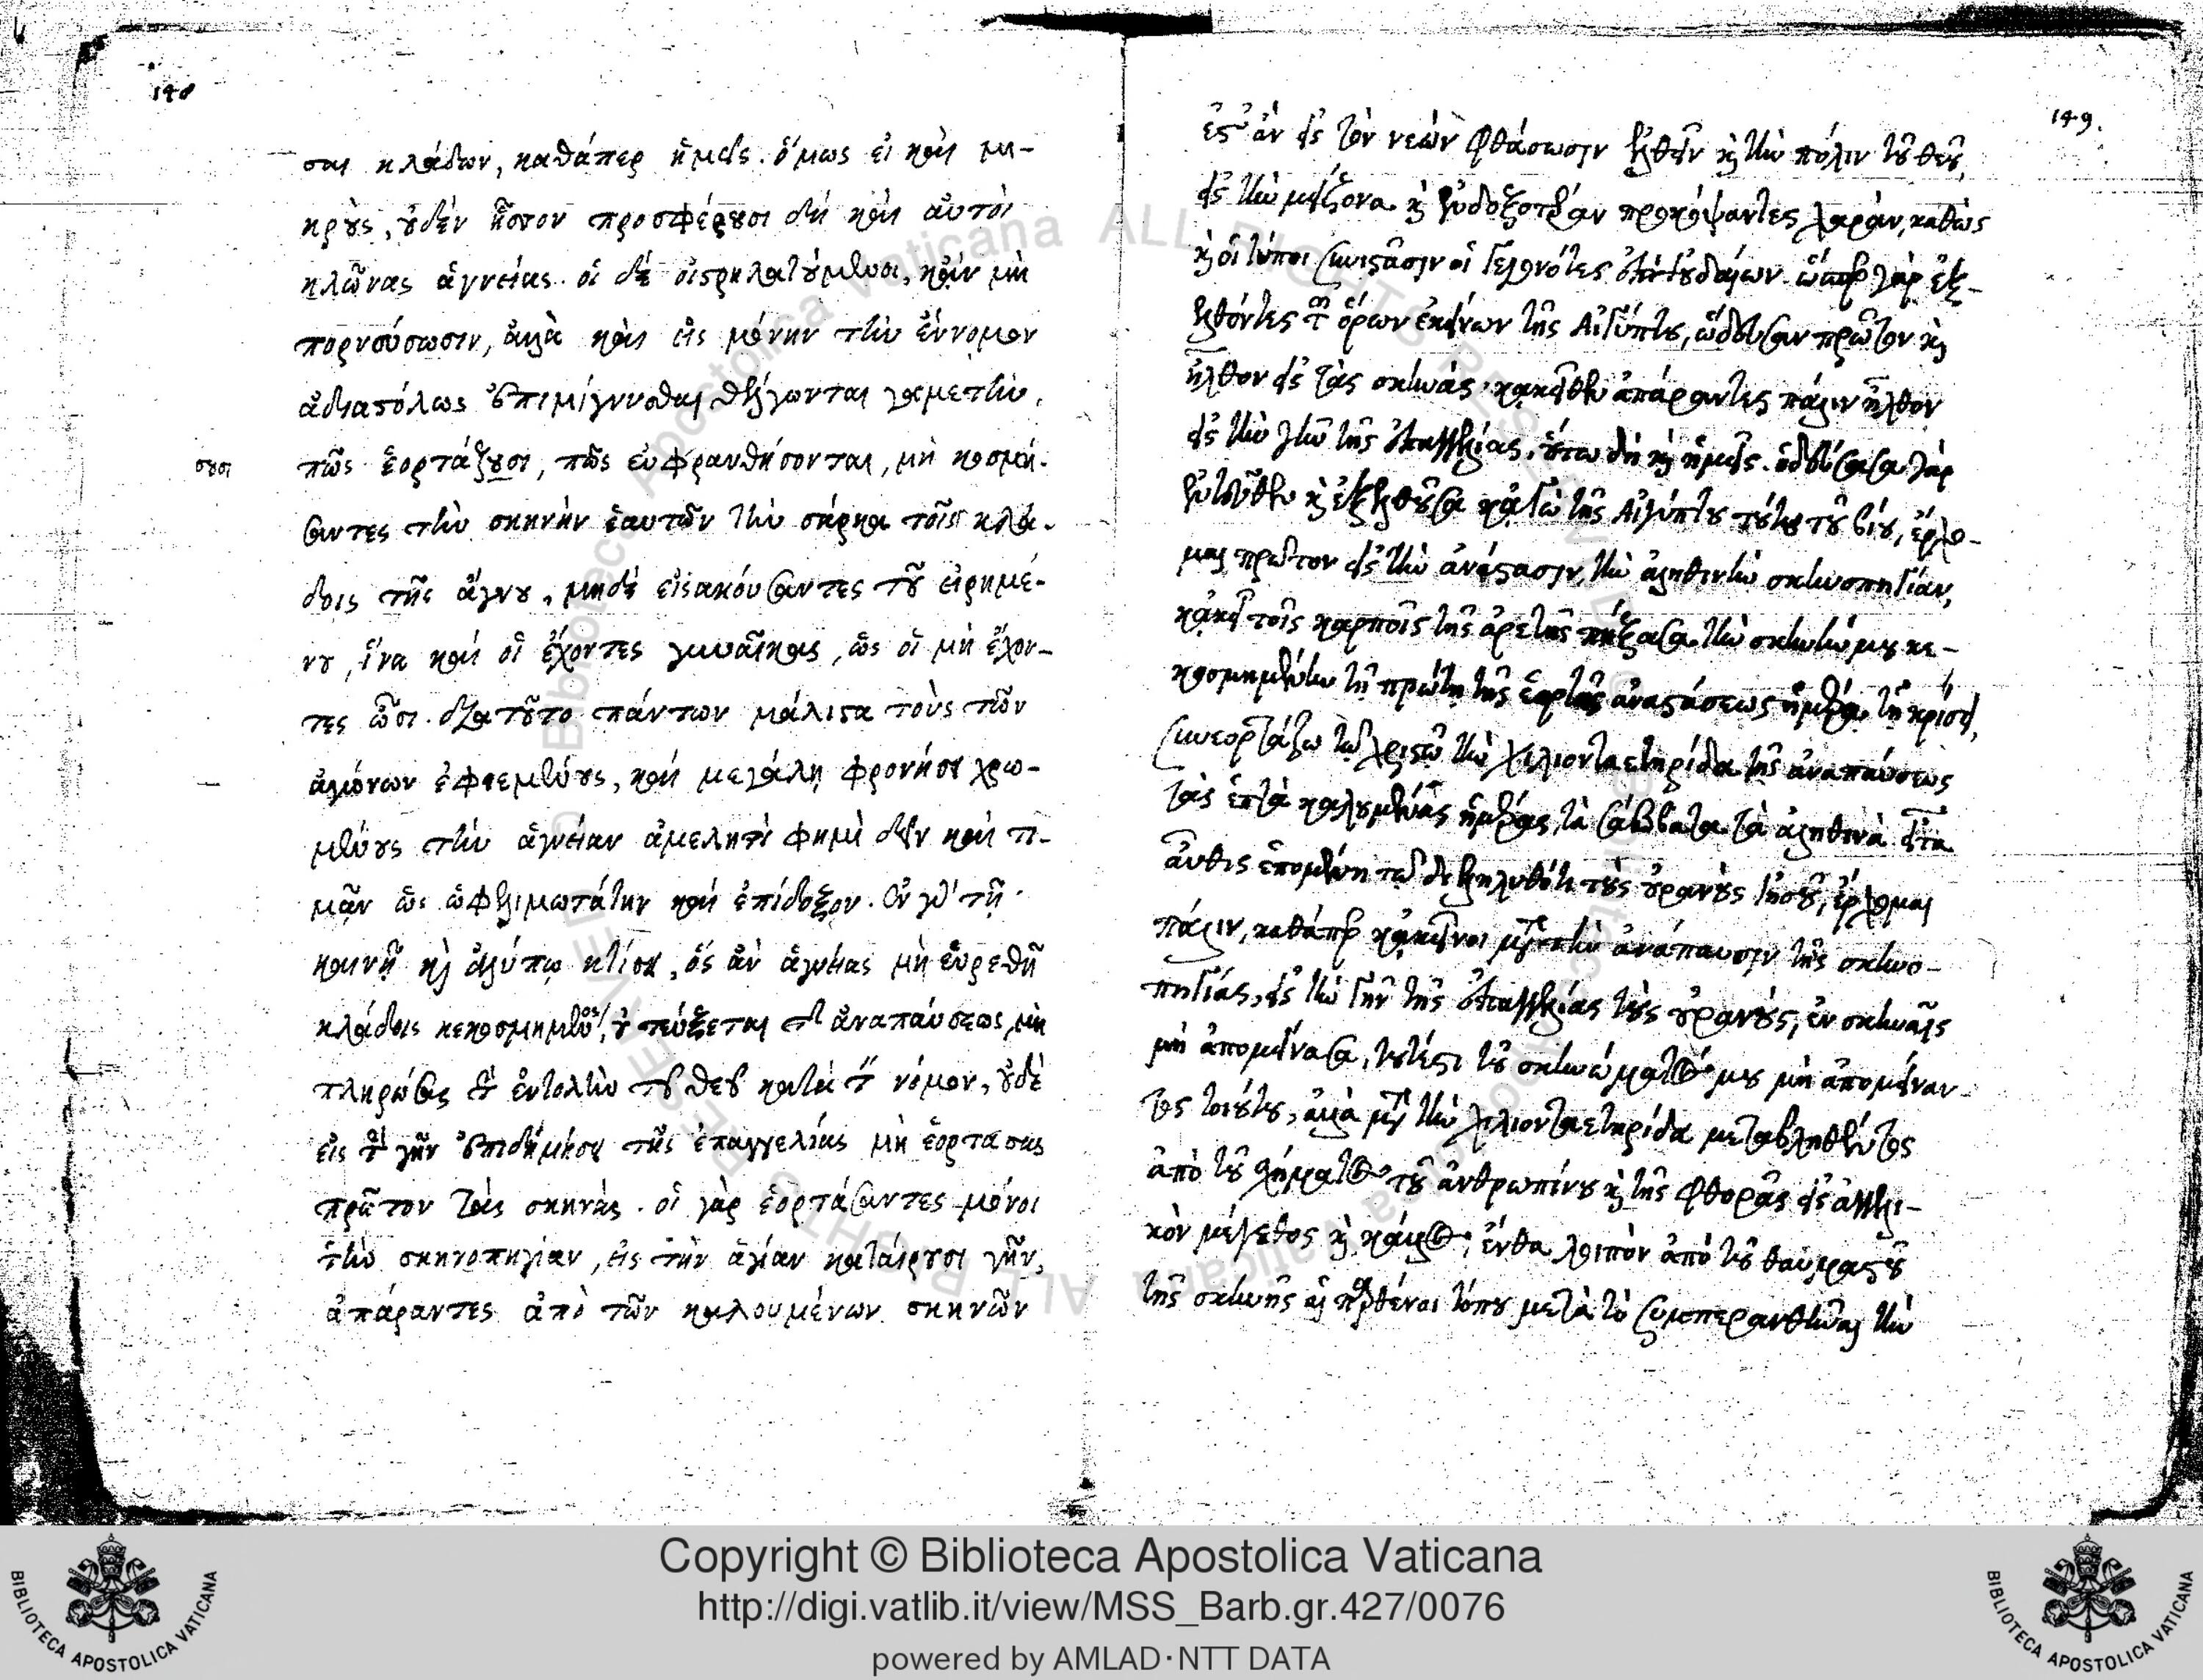 148
σαι κλάδων, καθάπερ ἡμεῖς. ὅμως εἰ καὶ μι-
κροὺς, οὐδὲν ἧττον προσφέρουσι δὴ καὶ αὐτοὶ
κλῶνας ἁγνείας. οἱ δὲ οἰστρηλατούμενοι, κἂν μὴ
πορνεύσωσιν, ἀλλὰ καὶ εἰς μόνην τὴν ἔννομον
ἀδιαπόλως ἐπιμίγνυσθαι θέλγονται γαμετὴν,
πῶς ἑορτάζουσι, πῶς εὐφρανθήσονται, μὴ κοσμή-
σουσι
σαντες τὴν σκηνὴν ἑαυτῶν τὴν σάρκα τοῖς κλά-
δοις τῆς ἄγνου, μηδὲ εἰσακούσαντες τοῦ εἰρημέ-
νου, ἵνα καὶ οἱ ἔχοντες γυναῖκας, ὡς οἱ μὴ ἔχον-
τες ὦσι. διὰ τοῦτο πάντων μάλιστα τοὺς τῶν
ἀγώνων ἐφιεμένους, καὶ μεγάλῃ φρονήσει χρω-
μένους τὴν ἁγνείαν ἀμελητὶ φημὶ δεῖν καὶ τι-
μᾶν ὡς ὠφελιμωτάτην καὶ ἐπίδοξον. ἐν γὰρ τῇ
καινῇ καὶ ἀλύπῳ κτίσει, ὃς ἂν ἁγνείας μὴ εὑρεθῇ
κλάδοις κεκοσμημένος, οὐ τεύξεται τῆς ἀναπαύσεως, μὴ
πληρώσας τὴν ἐντολὴν τοῦ θεοῦ κατὰ τὸν νόμον, οὐδὲ
εἰς τὴν γῆν ἐπιδημήσει τῆς ἐπαγγελίας μὴ ἑορτάσας
πρῶτον τὰς σκηνάς. οἱ γὰρ ἑορτάσαντες μόνοι
τὴν σκηνοπηγίαν, εἰς τὴν ἁγίαν καταίρουσι γῆν,
ἀπάραντες ἀπὸ τῶν καλουμένων σκηνῶν
149.
ἔστ' ἂν εἰς τὸν νεὼν φθάσωσιν ἐλθεῖν καὶ τὴν πόλιν τοῦ θεοῦ,
εἰς τὴν μείζονα καὶ ἐνδοξοτέραν προκόψαντες χαρὰν, καθὼς
καὶ οἱ τύποι συνιστᾶσιν οἱ γεγονότες ἐπὶ Ἰουδαίων. ὥσπερ γὰρ ἐξ-
ελθόντες τῶν ὅρων ἐκείνων τῆς Αἰγύπτου, ὥδευσαν πρῶτον καὶ
ἦλθον εἰς τὰς σκηνάς. κἀκεῖθεν ἀπάραντες πάλιν ἦλθον
εἰς τὴν γῆν τῆς ἐπαγγελίας, οὕτω δὴ καὶ ἡμεῖς. ὁδεύσασα γὰρ
ἐντεῦθεν καὶ ἐξελθοῦσα κἀγὼ τῆς Αἰγύπτου τούτου τοῦ βίου, ἔρχο-
μαι πρῶτον εἰς τὴν ἀνάστασιν, τὴν ἀληθινὴν σκηνοπηγίαν,
κἀκεῖ τοῖς καρποῖς τῆς ἀρετῆς πήξασα τὴν σκηνήν μου κε-
κοσμημένην τῇ πρώτῃ τῆς ἑορτῆς ἀναστάσεως ἡμέρᾳ, τῇ κρίσει,
συνεορτάζω τῷ χριστῷ τὴν χιλιονταετηρίδα τῆς ἀναπαύσεως
τὰς ἑπτὰ καλουμένας ἡμέρας, τὰ σάββατα τὰ ἀληθινά. εἶτα
αὖθις ἑπομένη τῷ διεληλυθότι τοὺς οὐρανοὺς Ἰησοῦ, ἔρχομαι
πάλιν, καθάπερ κἀκεῖνοι μετὰ τὴν ἀνάπαυσιν τῆς σκηνο-
πηγίας, εἰς τὴν γῆν τῆς ἐπαγγελίας τοὺς οὐρανοὺς, ἐν σκηναῖς
μὴ ἀπομείνασα, τουτέστι τοῦ σκηνώματός μου μὴ ἀπομείναν-
τος τοιούτου, ἀλλὰ μετὰ τὴν χιλιονταετηρίδα μεταβληθέντος
ἀπὸ τοῦ σχήματος τοῦ ἀνθρωπίνου καὶ τῆς φθορᾶς εἰς ἀγγελι-
κὸν μέγεθος καὶ κάλλος, ἔνθα λοιπὸν ἀπὸ τοῦ θαυμαστοῦ
τῆς σκηνῆς αἱ παρθένοι τόπου μετὰ τὸ συμπερανθῆναι τὴν
Copyright © Biblioteca Apostolica Vaticana
http://digi.vatlib.it/view/MSS_Barb.gr.427/0076
powered by AMLAD·NTT DATA
BIBLIOTECA APOSTOLICA VATICANA
BIBLIOTECA APOSTOLICA VATICANA